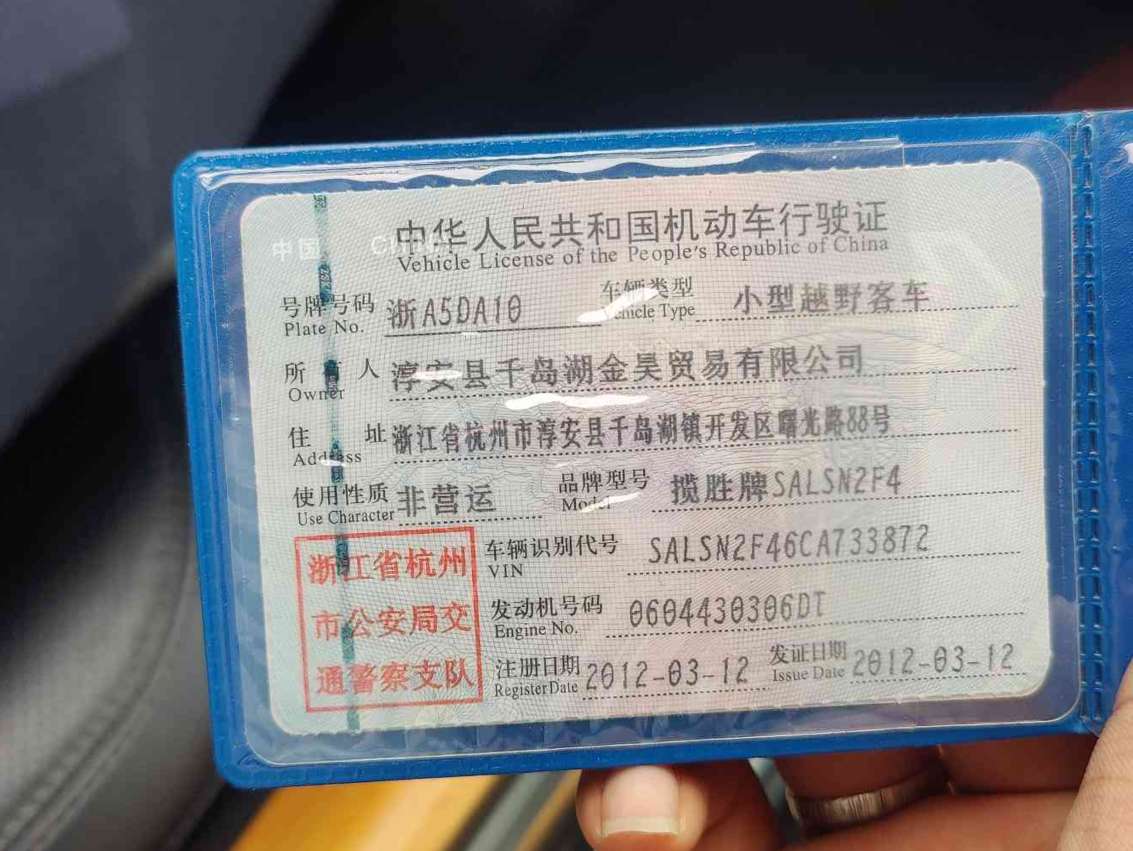 中华人民共和国机动车行驶证
Vehicle License of the People's Republic of China
号牌号码 浙A5DA10 车辆类型 小型越野客车
Plate No. Vehicle Type
所有人 淳安县千岛湖金昊贸易有限公司
Owner
住址 浙江省杭州市淳安县千岛湖镇开发区曙光路88号
Address
使用性质 非营运 品牌型号 揽胜牌SALSN2F4
Use Character Model
浙江省杭州
市公安局交
通警察支队
车辆识别代号 SALSN2F46CA733872
VIN
发动机号码 0604430306DT
Engine No.
注册日期 2012-03-12 发证日期 2012-03-12
Register Date Issue Date